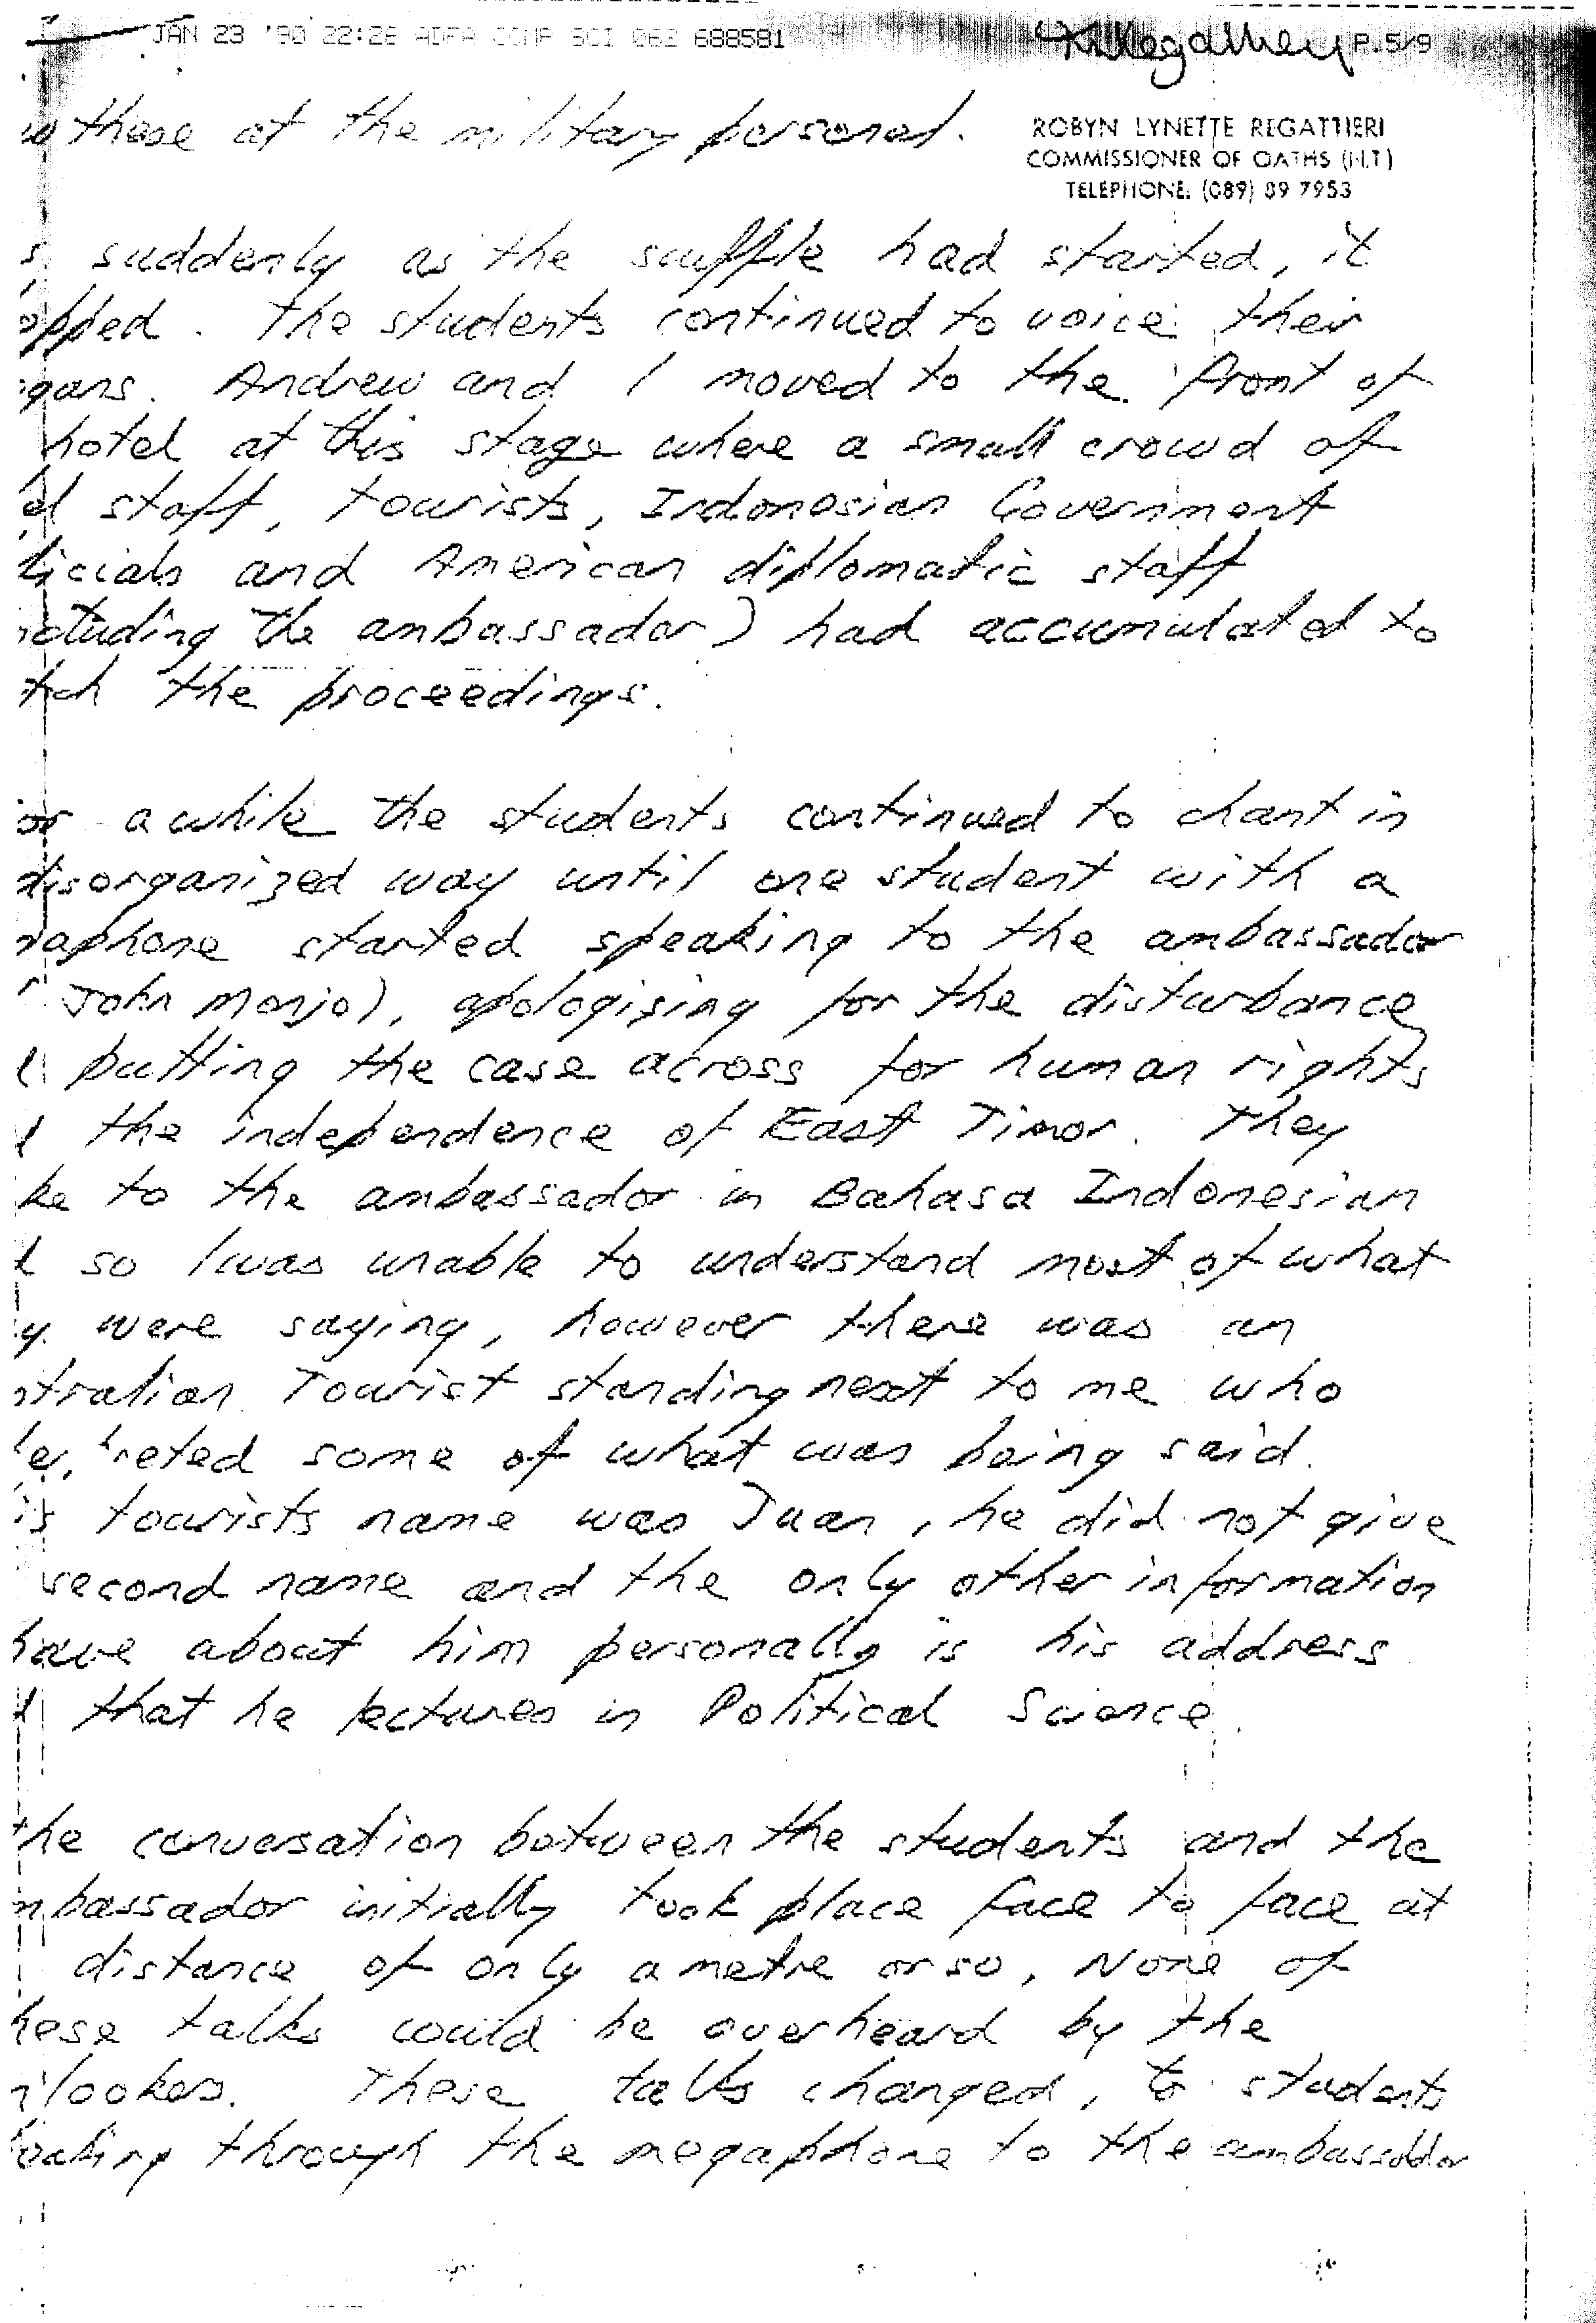 JAN 23 '90 22:26 ADFA COMP SCI 062 688581 P.5/9
ROBYN LYNETTE REGATTIERI
COMMISSIONER OF OATHS (N.T)
TELEPHONE: (089) 89 7953
these at the military personel.
s suddenly as the scuffle had started, it
opped. The students continued to voice their
gans. Andrew and I moved to the front of
hotel at this stage where a small crowd of
el staff, tourists, Indonesian Government
ficials and American diplomatic staff
ncluding the ambassador) had accumulated to
tch the proceedings.
or a while the students continued to chant in
disorganized way until one student with a
gaphone started speaking to the ambassador
r John Monjo), apologising for the disturbance
d putting the case across for human rights
d the independence of East Timor. They
ke to the ambassador in Bahasa Indonesian
d so I was unable to understand most of what
y were saying, however there was an
stralian Tourist standing next to me who
reted some of what was being said.
is tourists name was Juan, he did not give
second name and the only other information
have about him personally is his address
d that he lectures in Political Science.
the conversation between the students and the
mbassador initially took place face to face at
distance of only a metre or so, None of
hese talks could be overheard by the
nlookers. These talks changed, to students
eaking through the megaphone to the ambassador